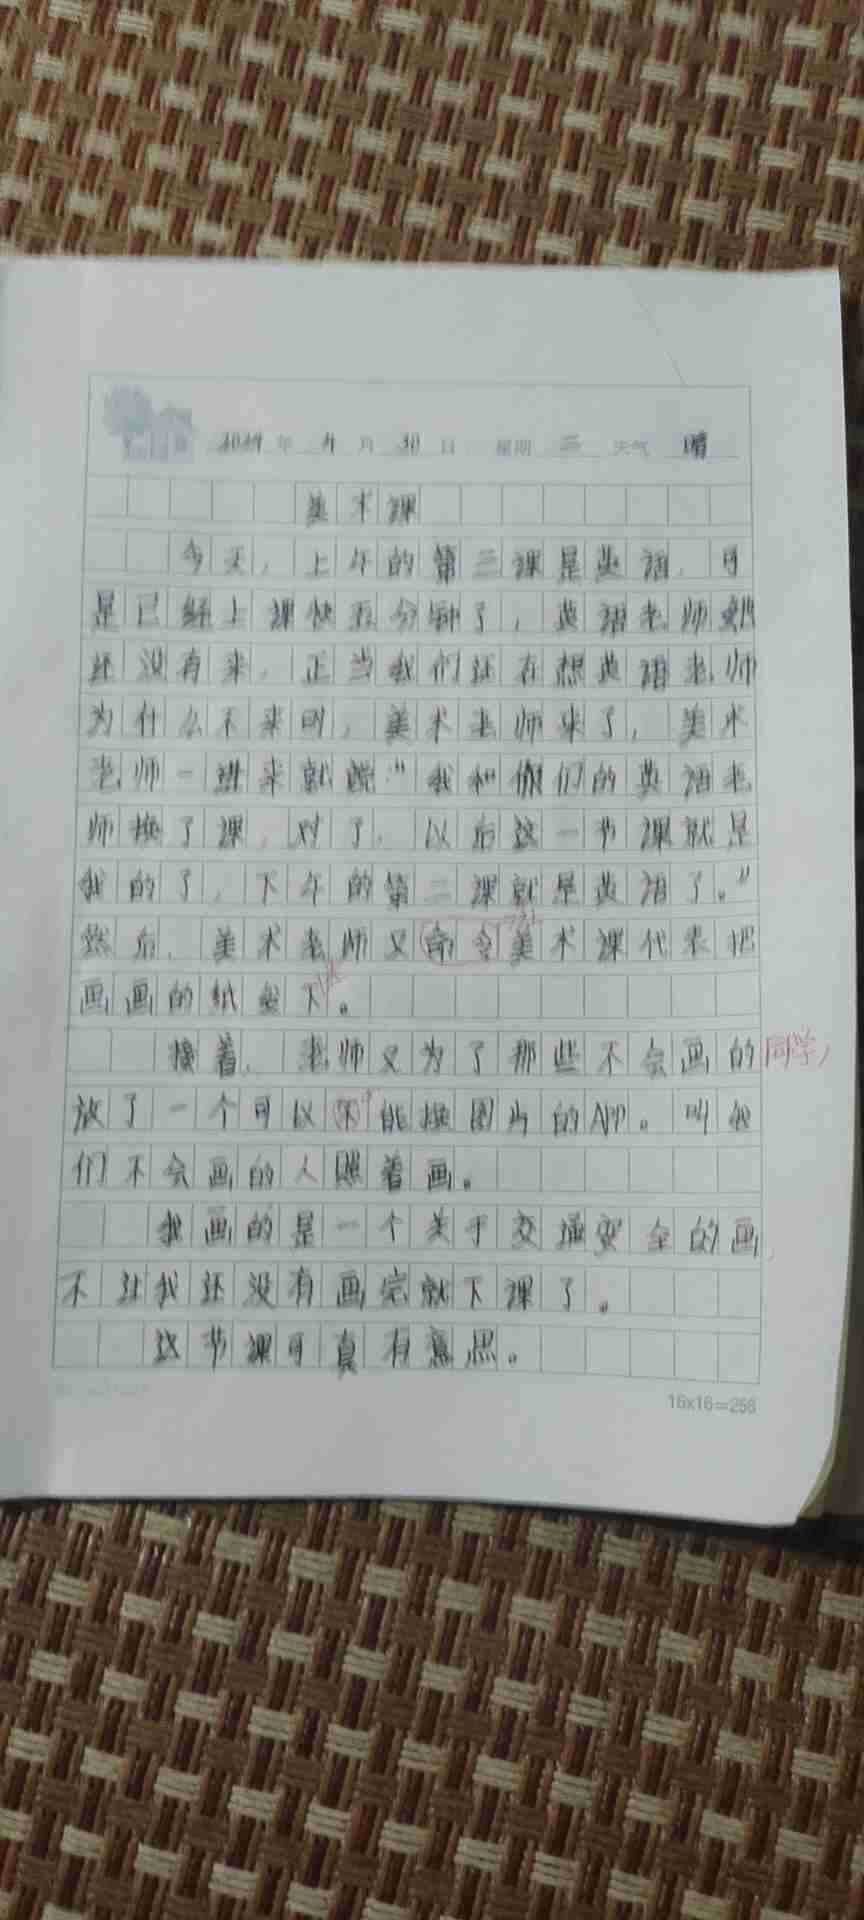 年 月 30 日 星期 三 天气 晴
美术课
今天，上午的第三课是英语，可
是已经上课快五分钟了，英语老师
还没有来，正当我们还在想英语老师
为什么不来时，美术老师来了，美术
老师一进来就说：“我和你们的英语老
师换了课，对了，以后这一节课就是
我的了，下午的第二课就是英语了。”
然后，美术老师又命令美术课代表把
画画的纸发下。
接着，老师又为了那些不会画的同学，
放了一个可以 能换图片的APP。叫我
们不会画的人照着画。
我画的是一个关于交通安全的画，
不过我还没有画完就下课了。
这节课可真有意思。
16x16=256